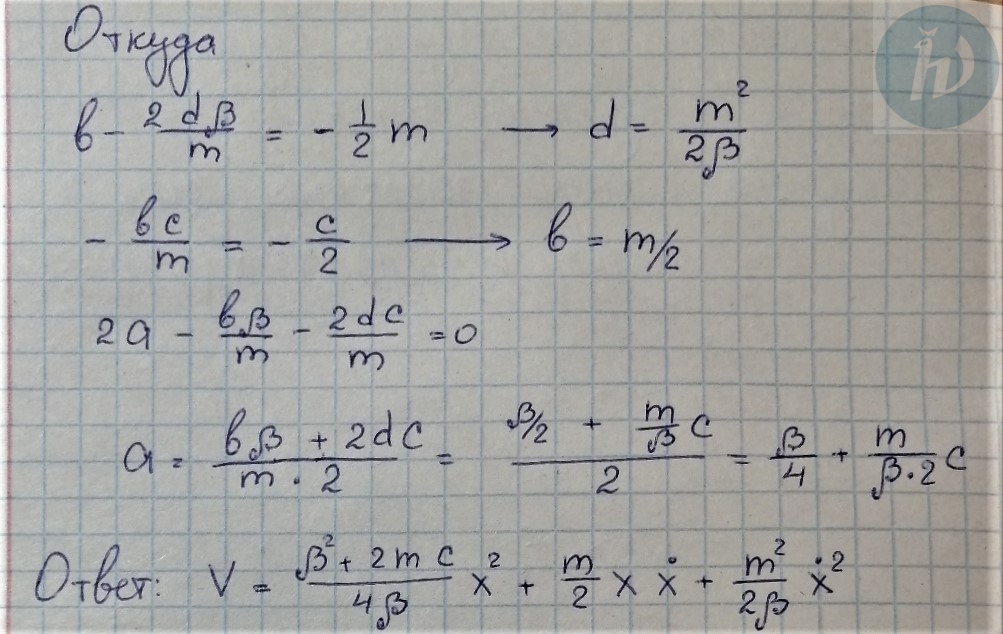 Откуда
в - 2dβ/m = - 1/2 m → d = m²/2β
- вc/m = - c/2 → в = m/2
2a - вβ/m - 2dc/m = 0
a = (вβ + 2dc)/(m · 2) = (β/2 + m/β c)/2 = β/4 + m/(β·2) c
Ответ: V = (β² + 2mc)/4β x² + m/2 x ẋ + m²/2β ẋ²